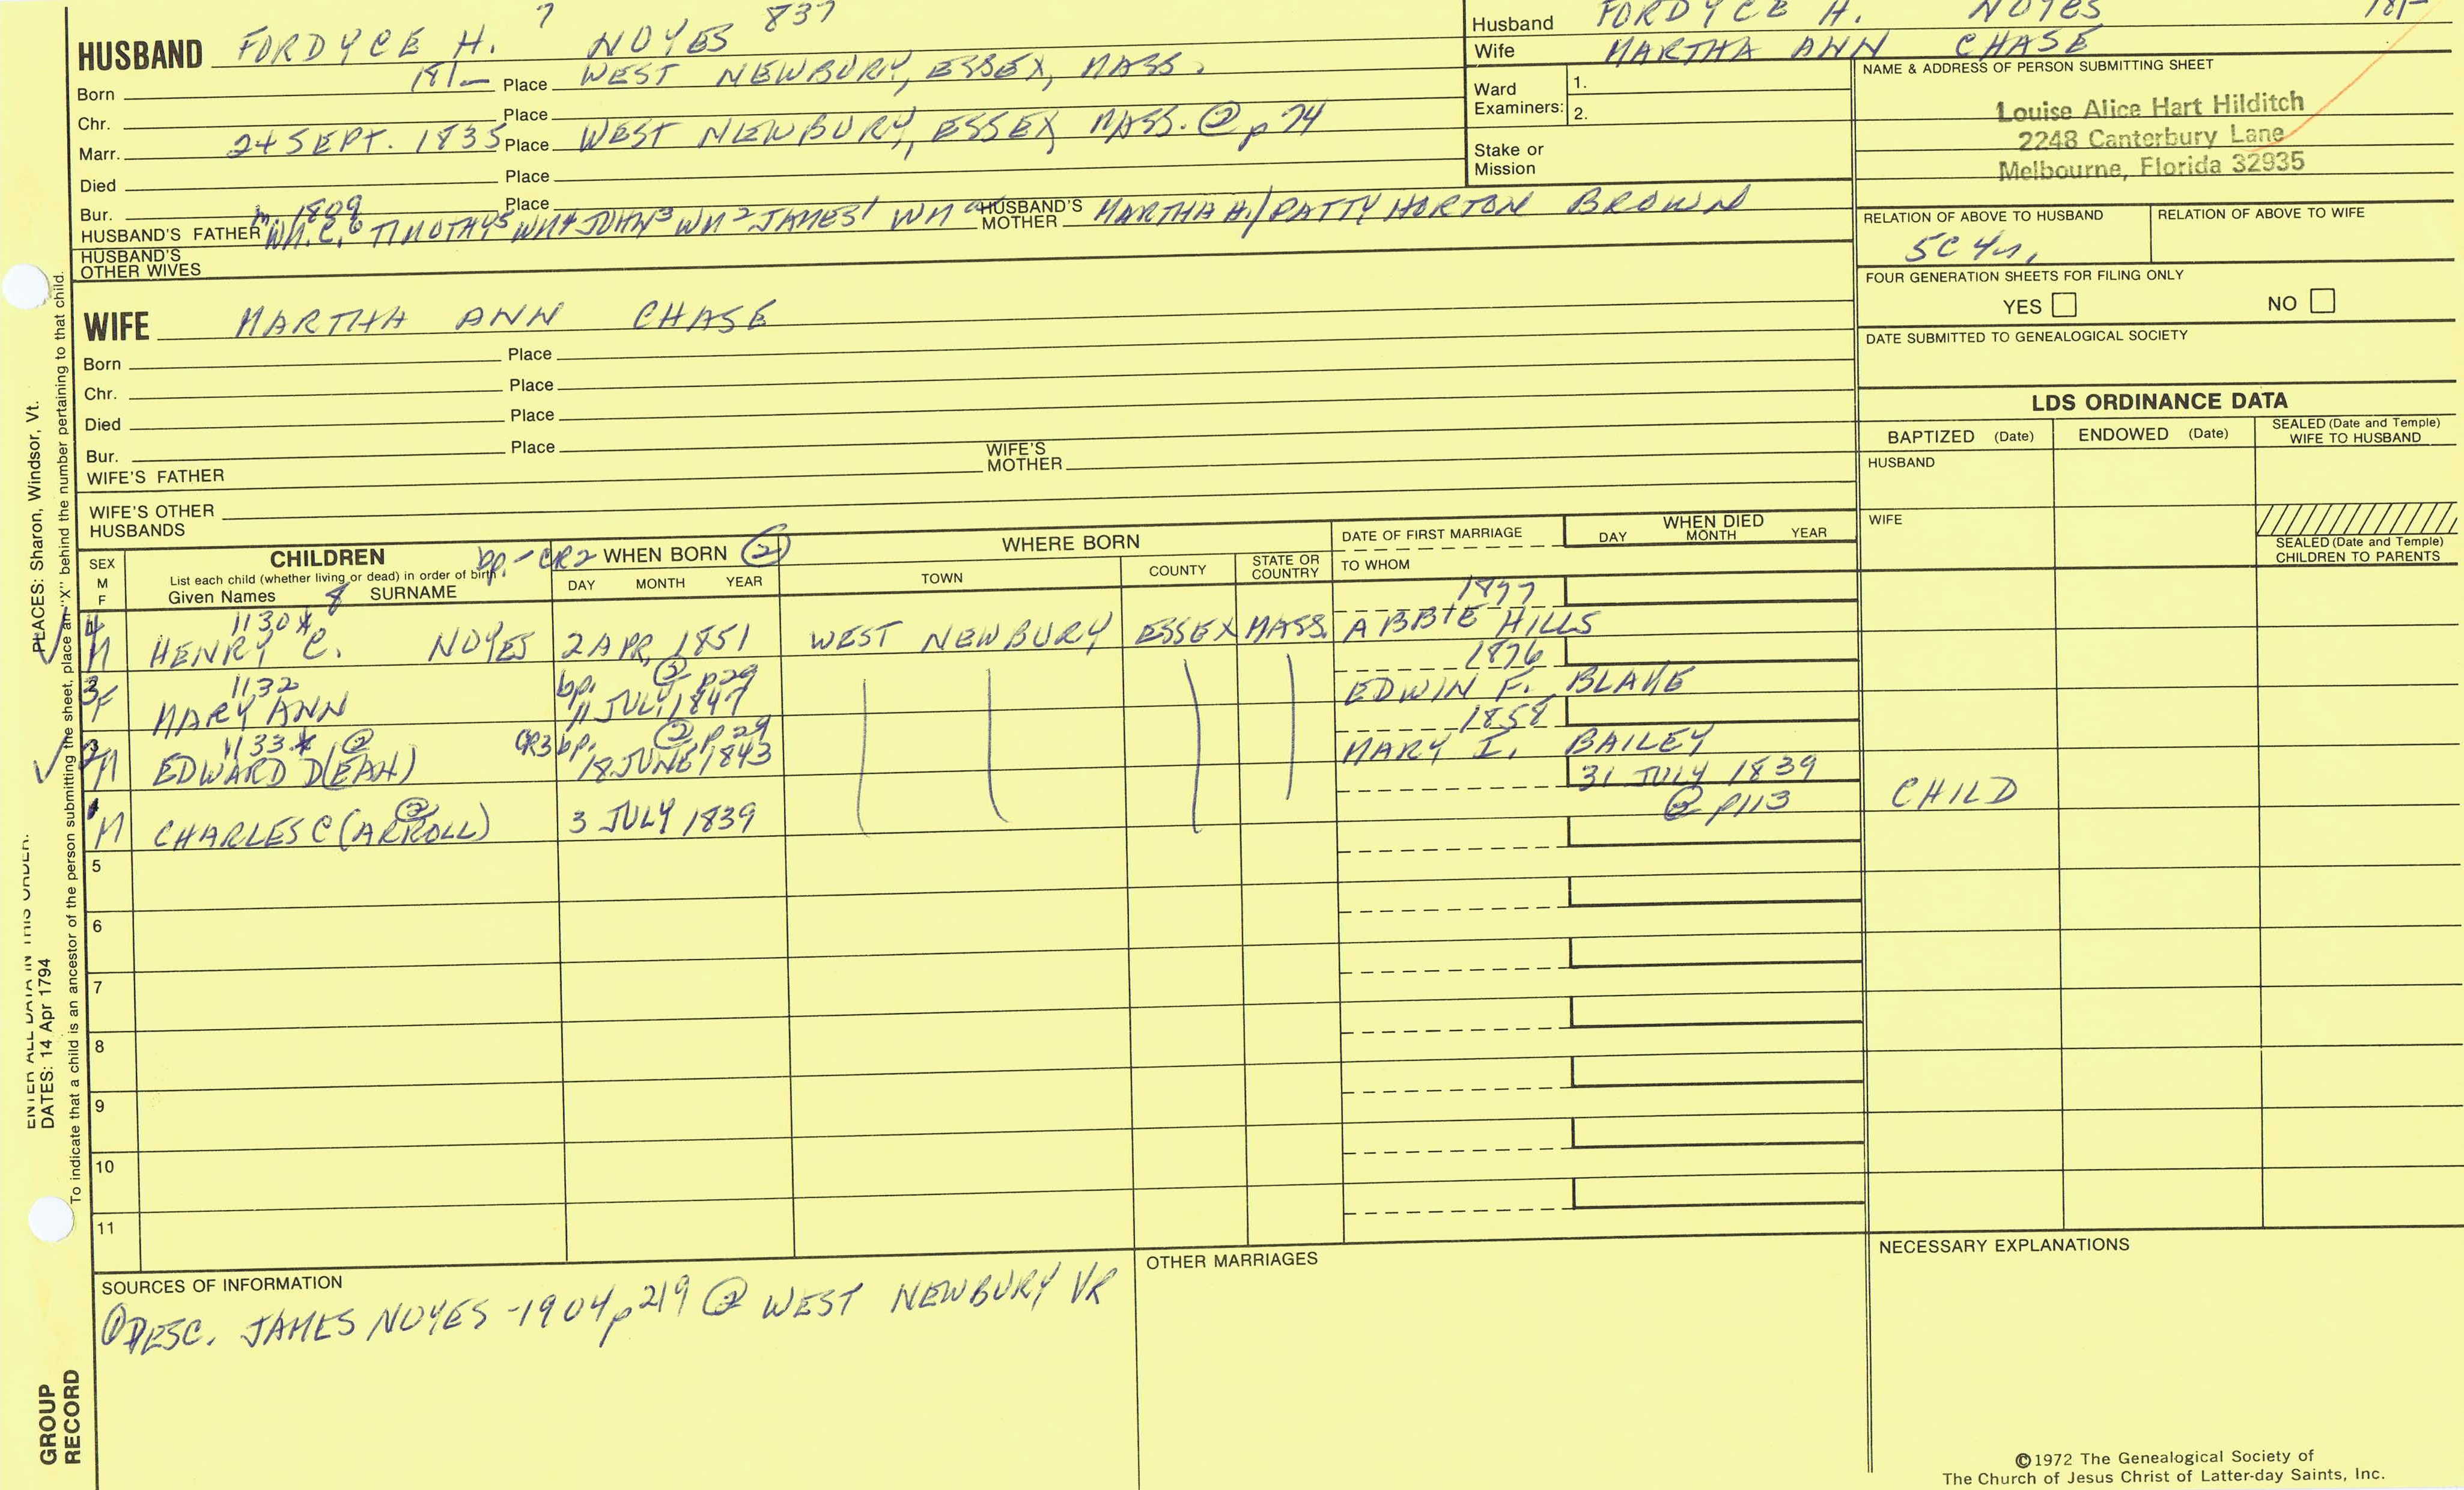 7 837
HUSBAND FORDYCE H. NOYES
Born 181_ Place WEST NEWBURY, ESSEX, MASS.
Chr. Place
Marr. 24 SEPT. 1835 Place WEST NEWBURY, ESSEX, MASS. ② p 74
Died Place
Bur. Place
m. 1809
HUSBAND'S FATHER WM. C.6 TIMOTHY5 WM4 JOHN3 WM2 JAMES1 WMa HUSBAND'S MOTHER MARTHA H./PATTY HORTON BROWN
HUSBAND'S
OTHER WIVES
Husband FORDYCE H. NOYES 181-
Wife MARTHA ANN CHASE
Ward
Examiners: 1.
2.
Stake or
Mission
NAME & ADDRESS OF PERSON SUBMITTING SHEET
Louise Alice Hart Hilditch
2248 Canterbury Lane
Melbourne, Florida 32935
RELATION OF ABOVE TO HUSBAND RELATION OF ABOVE TO WIFE
5C 4r.
FOUR GENERATION SHEETS FOR FILING ONLY
YES NO
DATE SUBMITTED TO GENEALOGICAL SOCIETY
WIFE MARTHA ANN CHASE
Born Place
Chr. Place
Died Place
Bur. Place
WIFE'S FATHER WIFE'S MOTHER
WIFE'S OTHER
HUSBANDS
LDS ORDINANCE DATA
BAPTIZED (Date) ENDOWED (Date) SEALED (Date and Temple)
WIFE TO HUSBAND
HUSBAND
WIFE
SEALED (Date and Temple)
CHILDREN TO PARENTS
SEX
M
F
CHILDREN
List each child (whether living or dead) in order of birth
Given Names 8 SURNAME
bp. - CR2 WHEN BORN ②
DAY MONTH YEAR
WHERE BORN
TOWN COUNTY STATE OR
COUNTRY
DATE OF FIRST MARRIAGE
TO WHOM
WHEN DIED
DAY MONTH YEAR
1130* 1877
4 M HENRY C. NOYES 2 APR. 1851 WEST NEWBURY ESSEX MASS. ABBIE HILLS
1132 bp. ② p29 1876
3 F MARY ANN 11 JULY 1847 EDWIN F. BLAKE
1133* ② CR3 bp. ② p29 1858
2 M EDWARD D(EAN) 18 JUNE 1843 MARY I. BAILEY
② 31 JULY 1839
1 M CHARLES C(ARROLL) 3 JULY 1839 ② p113 CHILD
5
6
7
8
9
10
11
SOURCES OF INFORMATION
① DESC. JAMES NOYES -1904 p219 ② WEST NEWBURY VR
OTHER MARRIAGES
NECESSARY EXPLANATIONS
©1972 The Genealogical Society of
The Church of Jesus Christ of Latter-day Saints, Inc.
PLACES: Sharon, Windsor, Vt.
To indicate that a child is an ancestor of the person submitting the sheet, place an "X" behind the number pertaining to that child.
ENTER ALL DATA IN THIS ORDER:
DATES: 14 Apr 1794
GROUP
RECORD